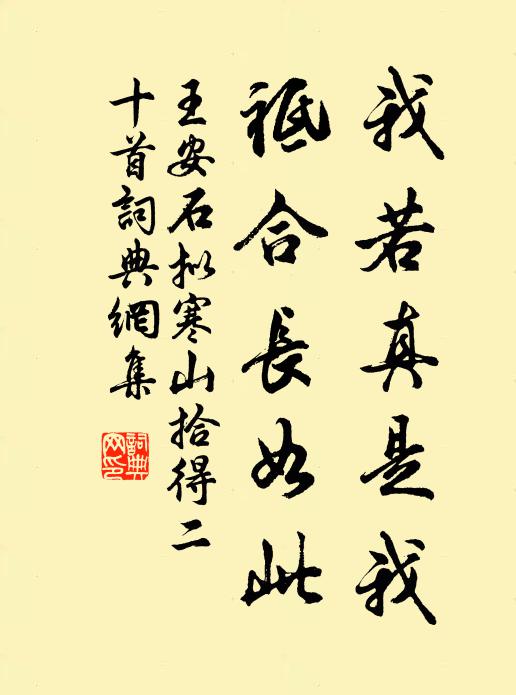 我若真是我
祗合長如此
王安石拟寒山拾得二
十首詞典網集
詞典
网印